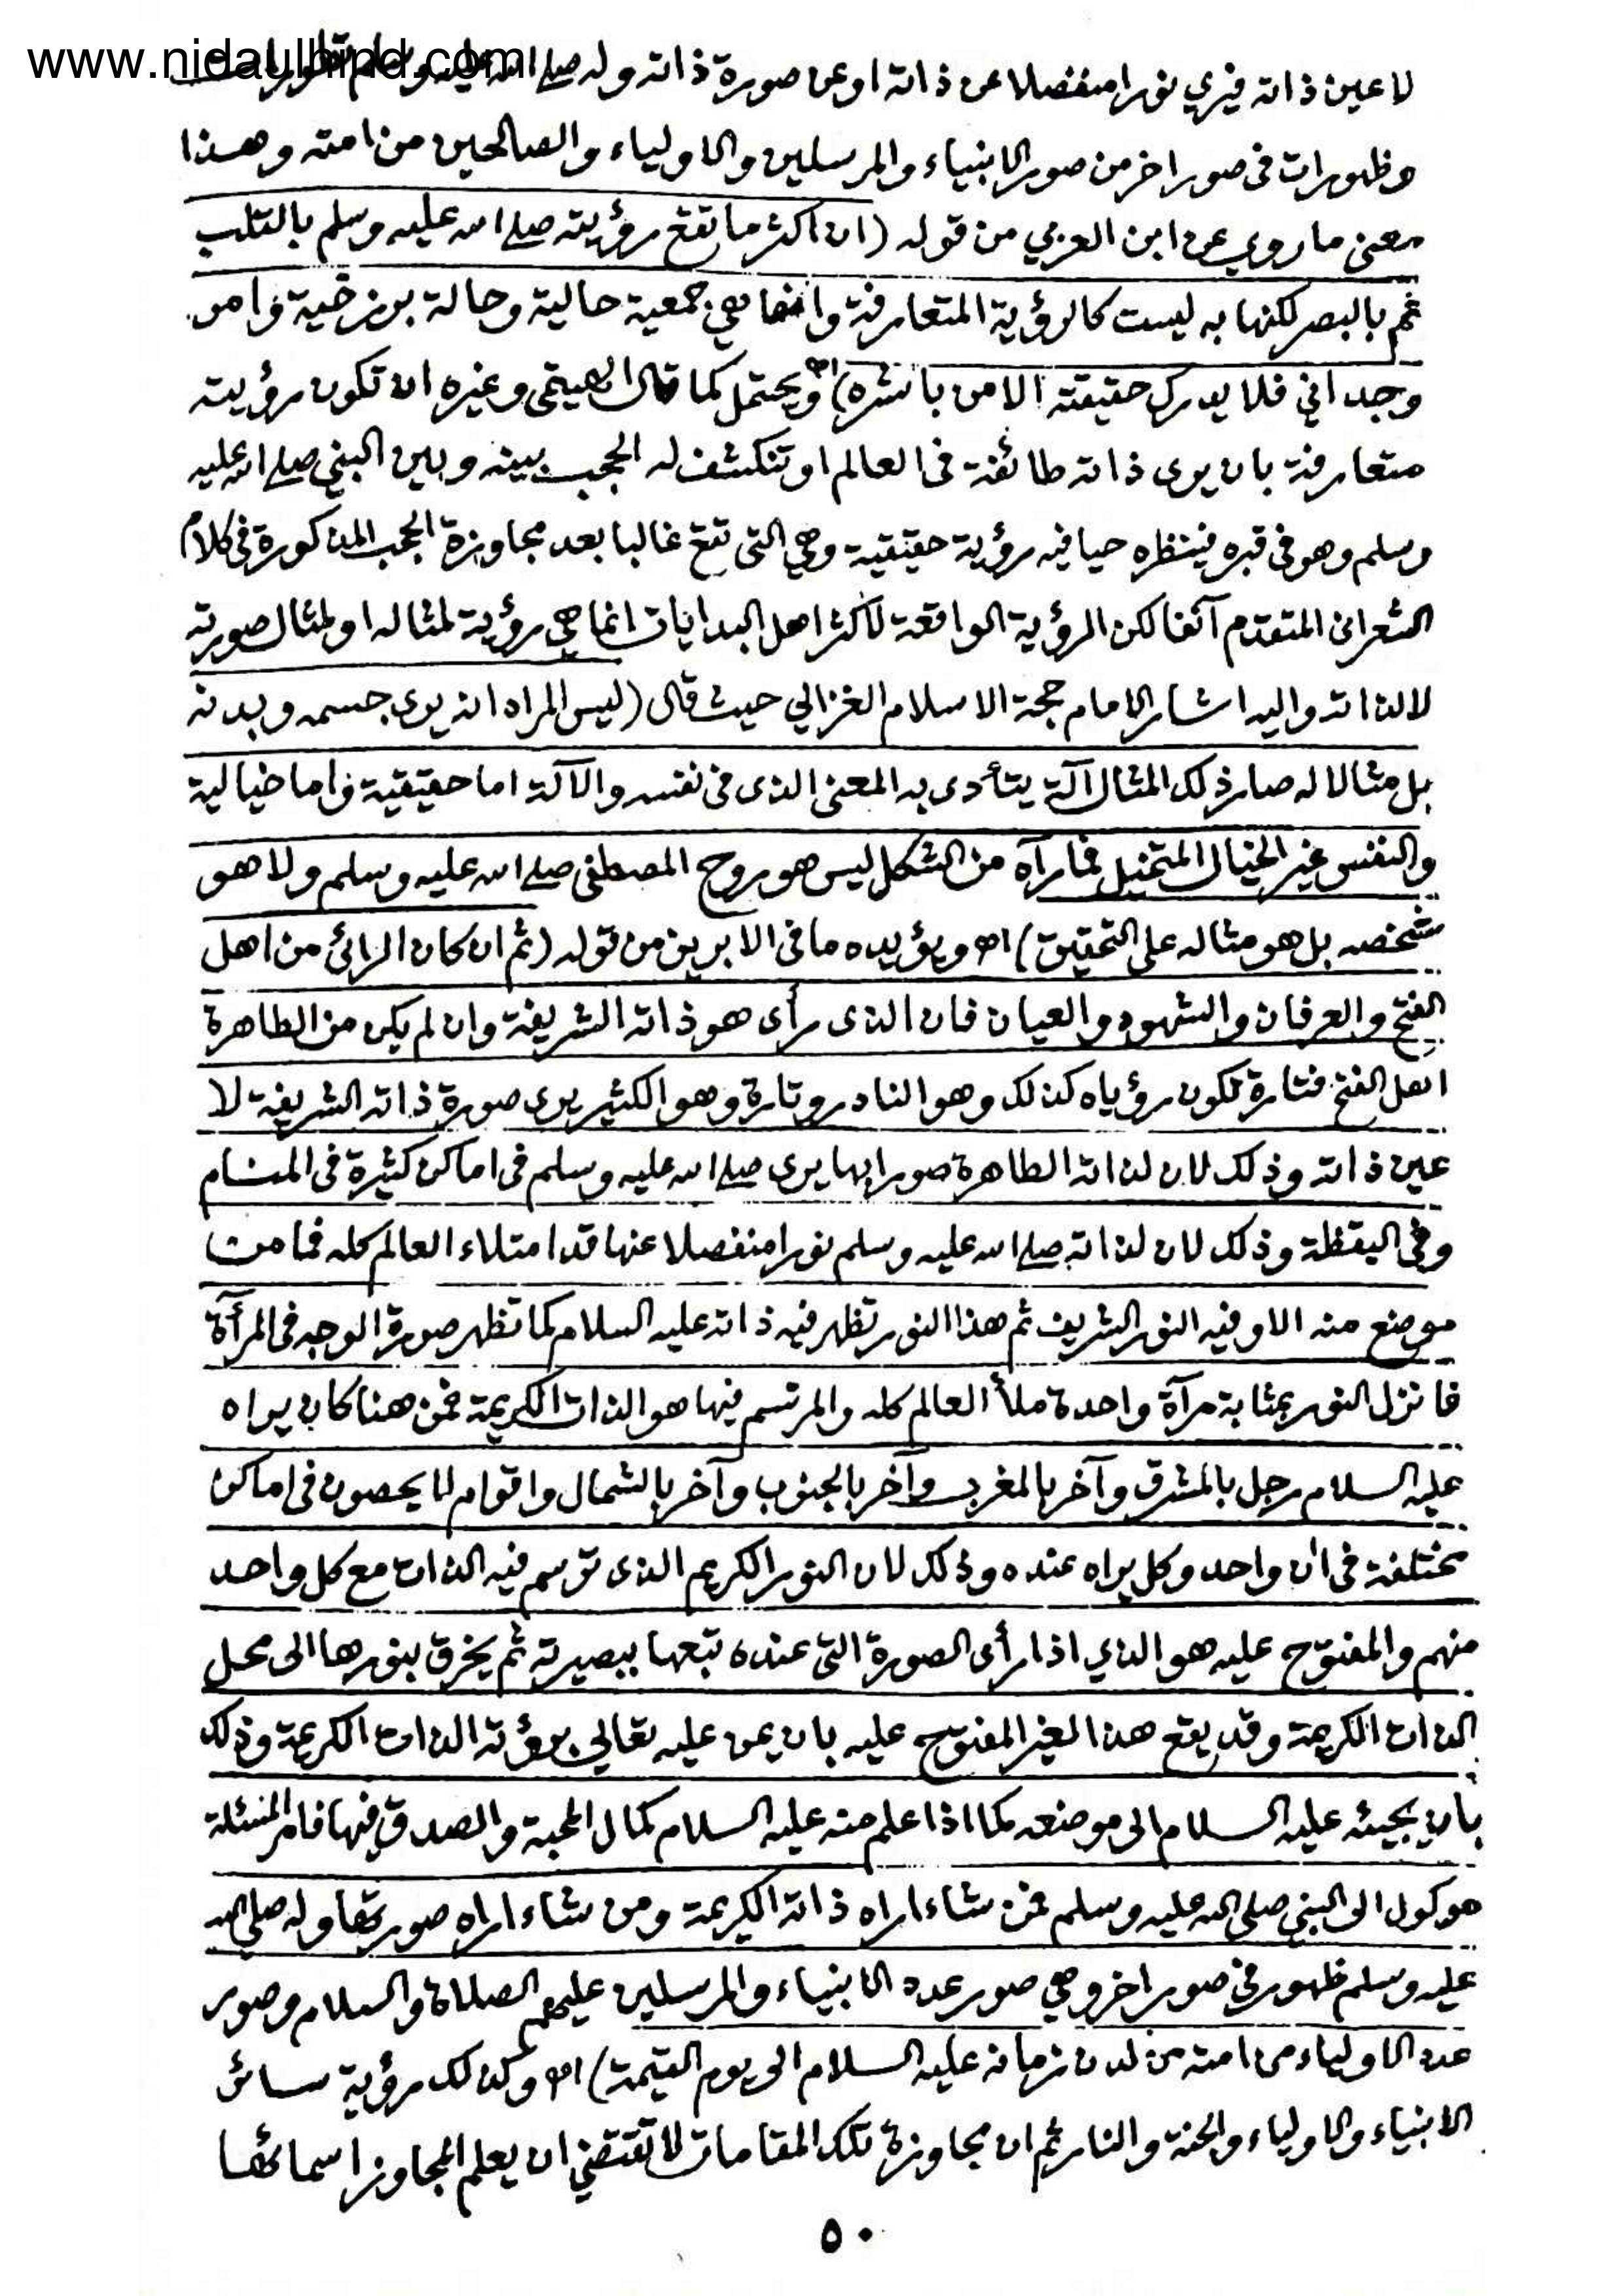 www.nidaulhind.com
لا عين ذاته فيري نورا منفصلا عن ذاته او عن صورة ذاته وله صلى الله عليه وسلم
وظهورات فى صور اخر من صور الانبياء والمرسلين والاولياء والصالحين من امته وهذا
معنى ما روي عن ابن العربي من قوله (ان اكثر ما تقع رؤيته صلى الله عليه وسلم بالقلب
ثم بالبصر لكنها به ليست كالرؤية المتعارفة وانما هي جمعية حالية وحالة برزخية وامر
وجداني فلا يدرك حقيقته الا من باشره) اه ويحتمل كما قال الهيتمى وغيره ان تكون رؤيته
متعارفة بان يرى ذاته طائفة فى العالم او تنكشف له الحجب بينه وبين النبي صلى الله عليه
وسلم وهو فى قبره فينظره حيا فيه رؤية حقيقية وهي التى تقع غالبا بعد مجاوزة الحجب المذكورة فى كلام
الشعرانى المتقدم آنفا لكن الرؤية الواقعة لاكثر اهل البدايات انما هي رؤية لمثاله او لمثال صورته
لا لذاته واليه اشار الامام حجة الاسلام الغزالي حيث قال (ليس المراد انه يرى جسمه وبدنه
بل مثالا له صار ذلك المثال آلة يتأدى به المعنى الذى فى نفسه والآلة اما حقيقية واما خيالية
والنفس غير الخيال المتخيل فما رآه من الشكل ليس هو روح المصطفى صلى الله عليه وسلم ولا هو
شخصه بل هو مثاله على التحقيق) اه ويؤيده ما فى الابريز من قوله (ثم ان كان الرائى من اهل
الفتح والعرفان والشهود والعيان فان الذى رأى هو ذاته الشريفة وان لم يكن من الطاهرة
اهل الفتح فتارة تكون رؤياه كذلك وهو النادر وتارة وهو الكثير يرى صورة ذاته الشريفة لا
عين ذاته وذلك لان لذاته الطاهرة صورا بها يرى صلى الله عليه وسلم فى اماكن كثيرة فى المنام
وفى اليقظة وذلك لان لذاته صلى الله عليه وسلم نورا منفصلا عنها قد امتلاء العالم كله فما من
موضع منه الا وفيه النور الشريف ثم هذا النور تظهر فيه ذاته عليه السلام كما تظهر صورة الوجه فى المرآة
فانزل النور بمثابة مرآة واحدة ملأ العالم كله والمرتسم فيها هو الذات الكريمة فمن هنا كان يراه
عليه السلام رجل بالمشرق وآخر بالمغرب وآخر بالجنوب وآخر بالشمال واقوام لا يحصون فى اماكن
مختلفة فى ان واحد وكل يراه عنده وذلك لان النور الكريم الذى ترتسم فيه الذات مع كل واحد
منهم والمفتوح عليه هو الذي اذا رأى الصورة التى عنده تبعها ببصيرته ثم يخرق بنورها الى محل
الذات الكريمة وقد يقع هذا لغير المفتوح عليه بان يمن عليه تعالى برؤية الذات الكريمة وذلك
بان يجيئه عليه السلام الى موضعه كما اذا علم منه عليه السلام كمال المحبة والصدق فيها فامر المسئلة
موكول الى النبي صلى الله عليه وسلم فمن شاء اراه ذاته الكريمة ومن شاء اراه صورتها وله صلى الله
عليه وسلم ظهور فى صور اخر وهي صور عدد الانبياء والمرسلين عليهم الصلاة والسلام وصور
عدد الاولياء من امته من لدن زمانه عليه السلام الى يوم القيمة) اه وكذلك رؤية سائر
الانبياء والاولياء والجنة والنار ثم ان مجاوزة تلك المقامات لا تقتضي ان يعلم المجاوز اسمائها
٥٠